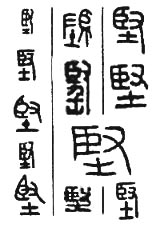 堅堅堅堅
堅堅
堅堅堅堅堅